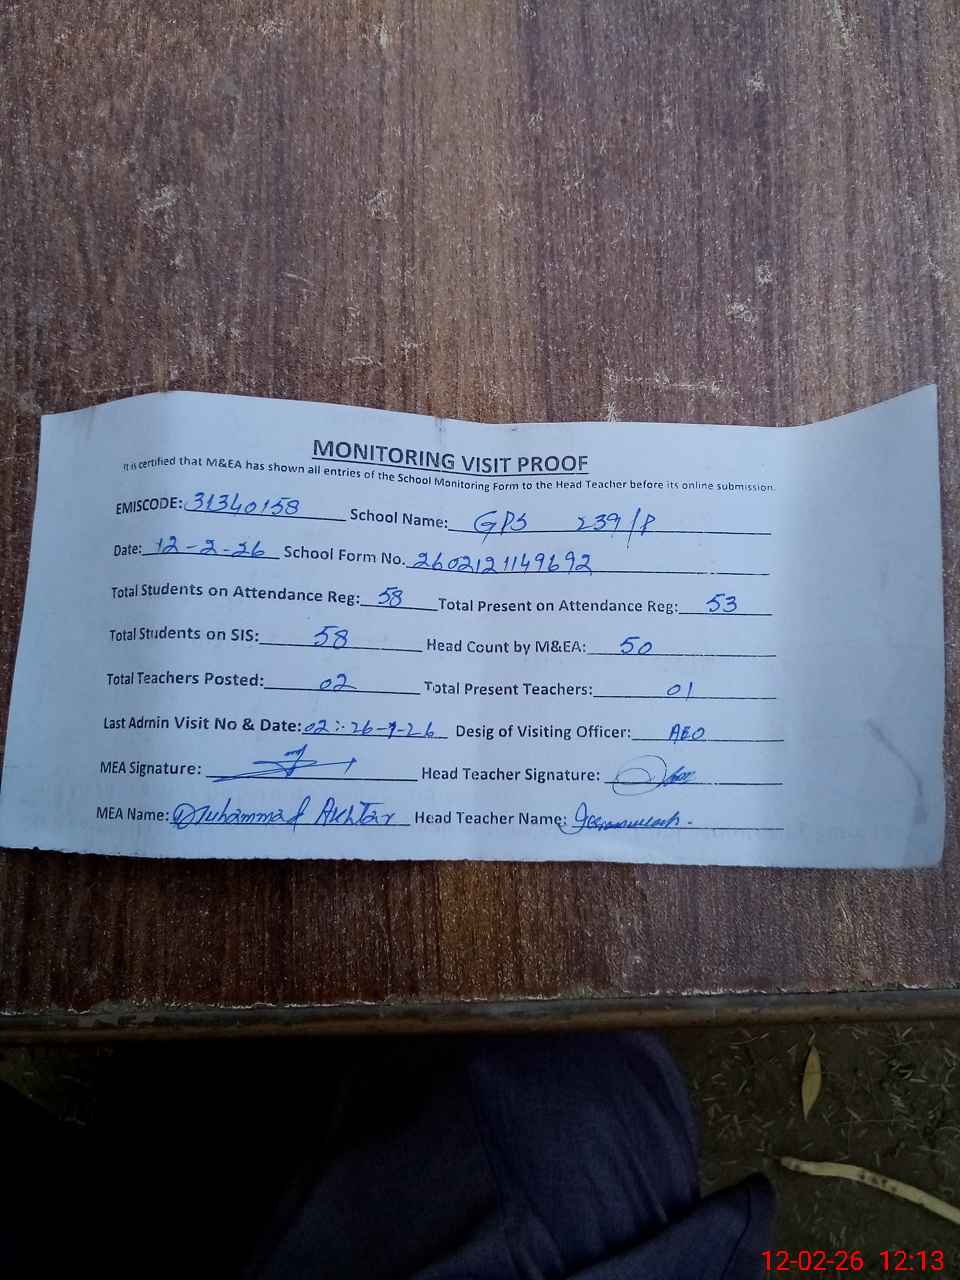 MONITORING VISIT PROOF
It is certified that M&EA has shown all entries of the School Monitoring Form to the Head Teacher before its online submission.
EMISCODE: 31340158 School Name: GPS 239/P
Date: 12-2-26 School Form No. 2602121149692
Total Students on Attendance Reg: 58 Total Present on Attendance Reg: 53
Total Students on SIS: 58 Head Count by M&EA: 50
Total Teachers Posted: 02 Total Present Teachers: 01
Last Admin Visit No & Date: 02:- 26-1-26 Desig of Visiting Officer: AEO
MEA Signature: Head Teacher Signature:
MEA Name: Muhammad Akhtar Head Teacher Name:
12-02-26 12:13